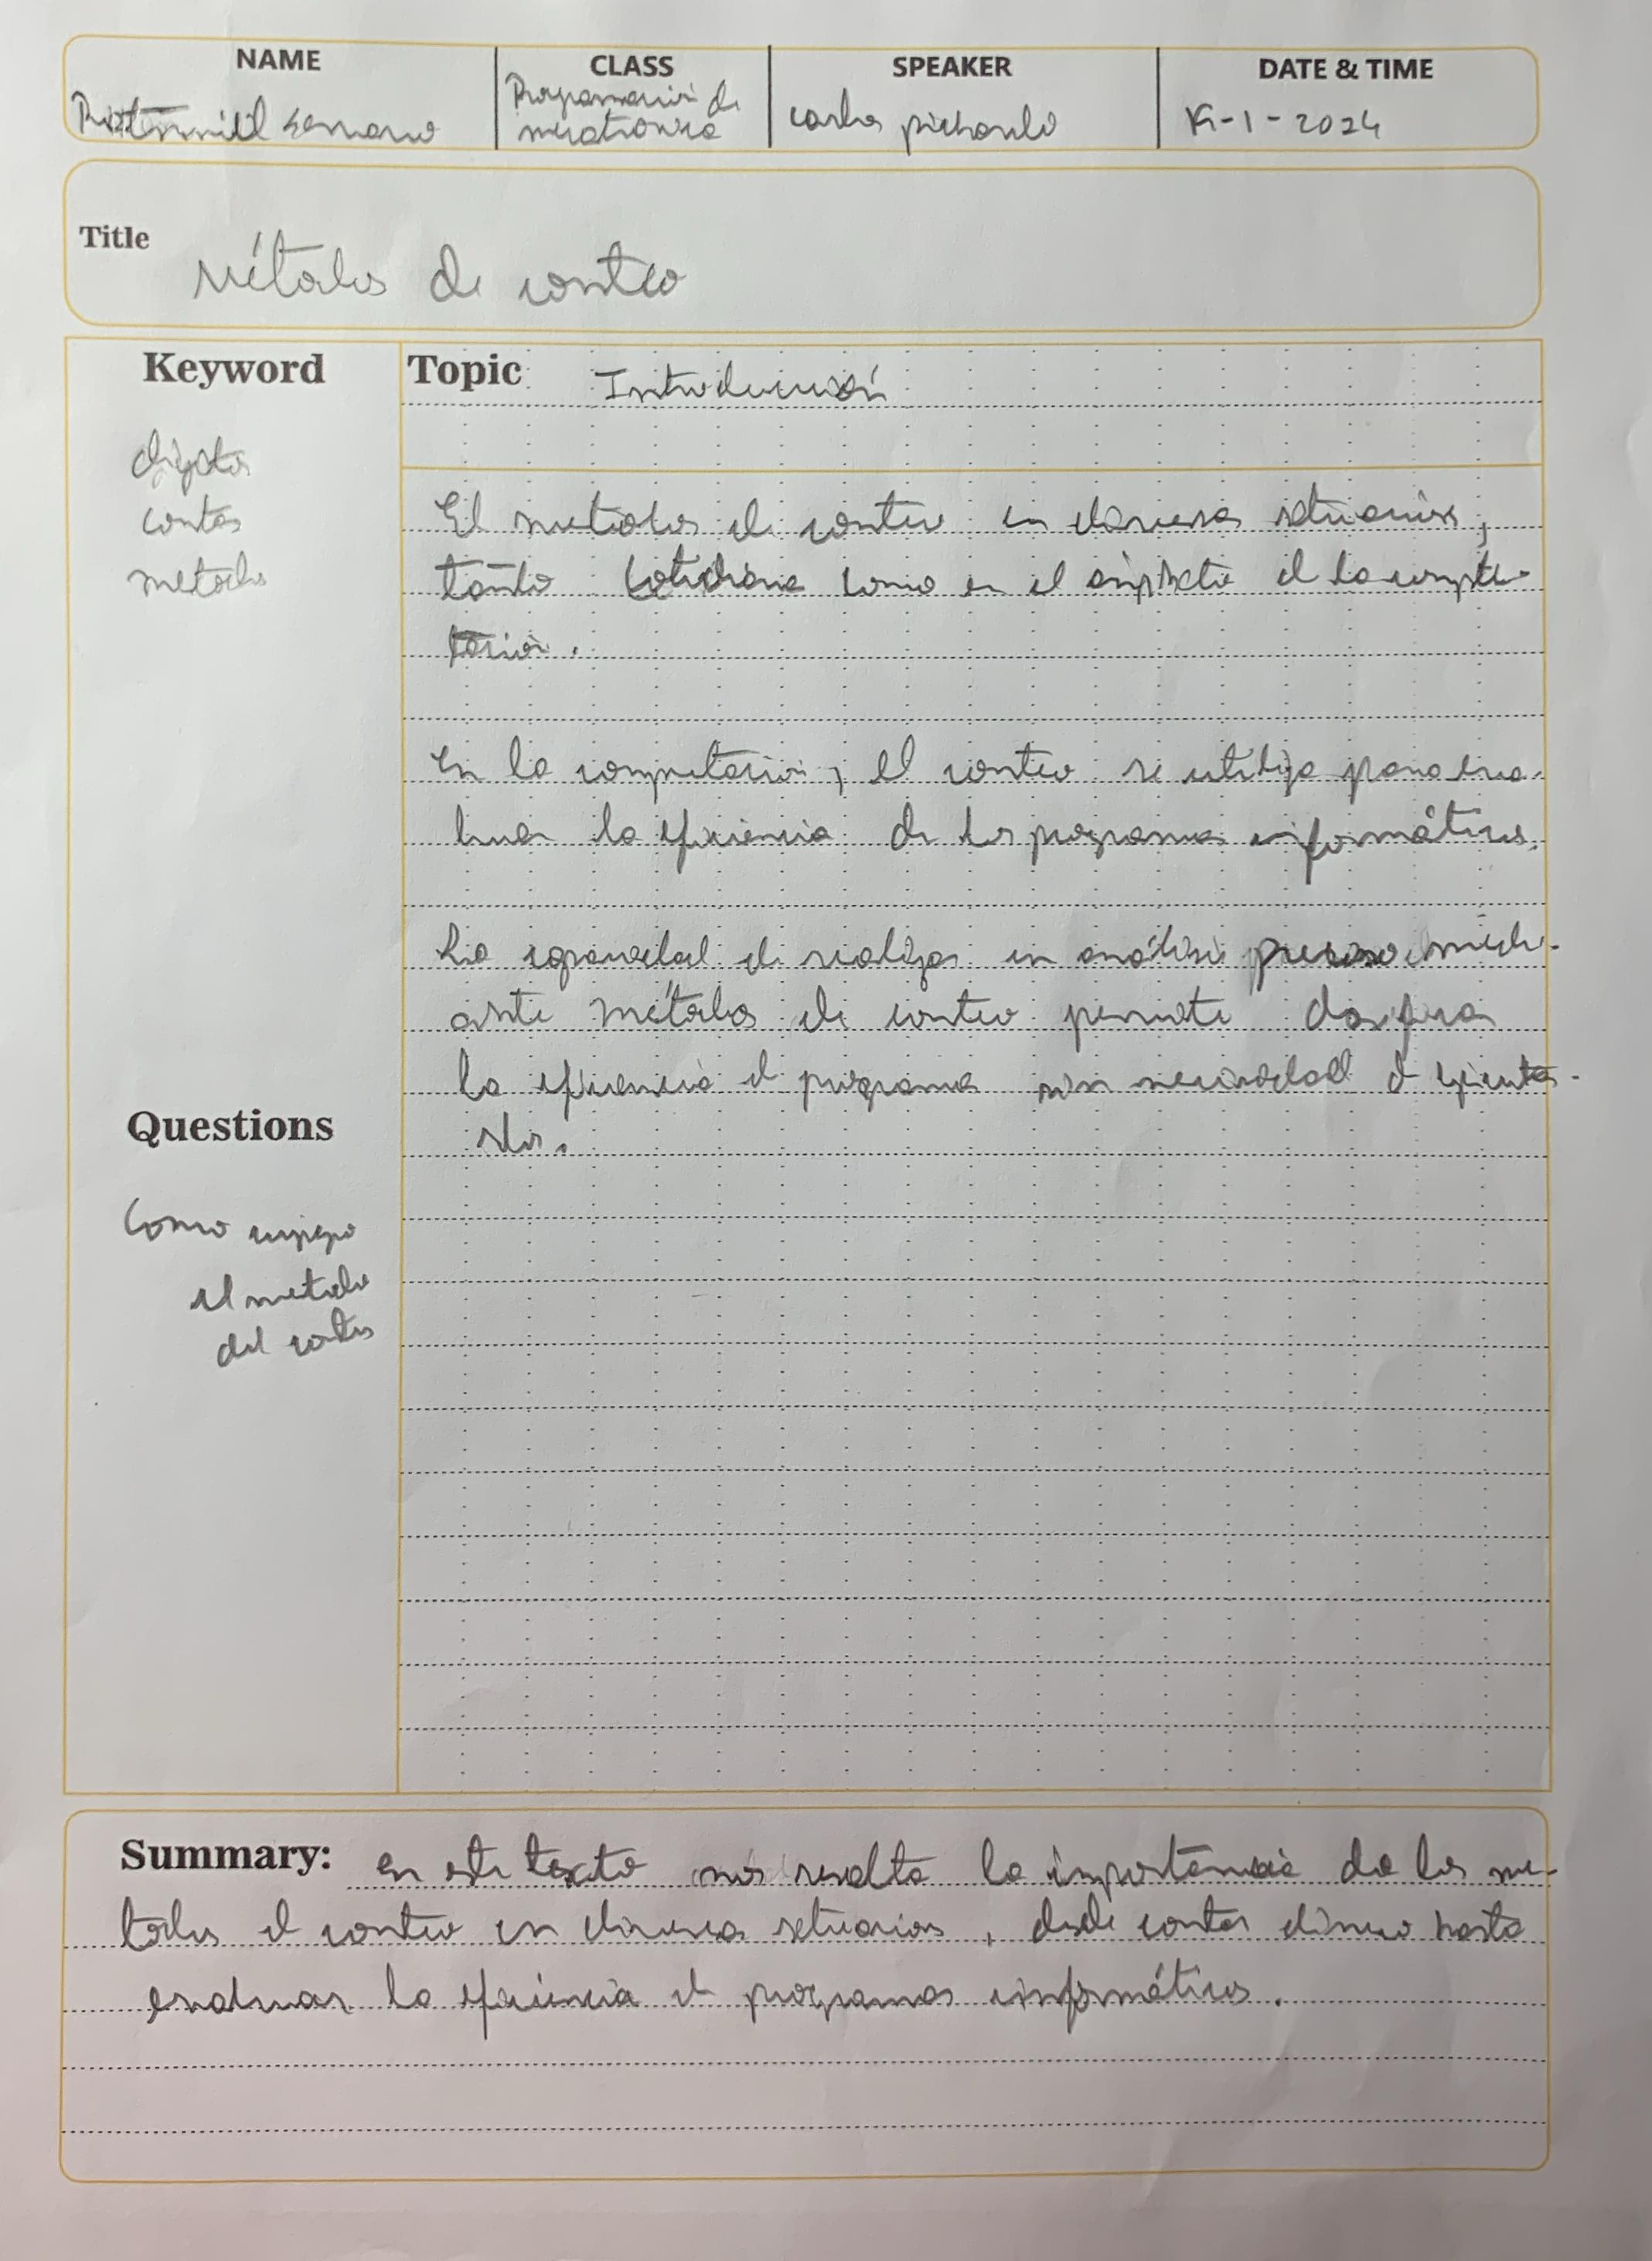 NAME CLASS SPEAKER DATE & TIME
Programación de
mecatronica
Carlos pichardo
-1-2024
Title
Métodos de conteo
Keyword Topic Introducción
objetos
contas
metodos
El metodos de conteo en diversas situacions,
tanto cotidiana como en el ámbito de la compu-
tación.
En la computación, el conteo se utiliza para eva-
luar la eficiencia de los programas informáticos.
La capacidad de realizar un análisis preciso medi-
ante métodos de conteo permite
la eficiencia de programa sin necesidad de ejecuta-
slos.
Questions
Como
el metodo
del contes
Summary: en este texto nos resalta la importancia de los me-
todos de conteo en diversas situacios, desde contar dinero hasta
evaluar la eficiencia de programas informáticos.